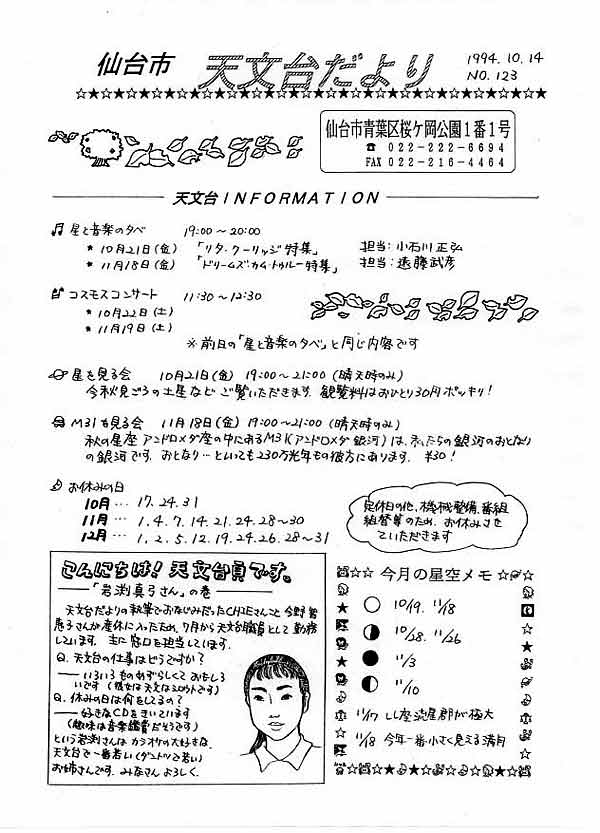 仙台市 天文台だより 1994.10.14
NO.123
仙台市青葉区桜ケ岡公園1番1号
☎ 022-222-6694
FAX 022-216-4464
天文台INFORMATION
星と音楽の夕べ 19:00〜20:00
* 10月21日(金) 「リタ・クーリッジ特集」 担当：小石川正弘
* 11月18日(金) 「ドリームズ・カム・トゥルー特集」 担当：遠藤武彦
コスモスコンサート 11:30〜12:30
* 10月22日(土)
* 11月19日(土)
※前日の「星と音楽の夕べ」と同じ内容です
星を見る会 10月21日(金) 19:00〜21:00 (晴天時のみ)
今秋見ごろの土星など ご覧いただきます. 観覧料はおひとり30円ポッキリ!
M31を見る会 11月18日(金) 19:00〜21:00 (晴天時のみ)
秋の星座 アンドロメダ座の中にあるM31(アンドロメダ銀河)は、私たちの銀河のおとなり
の銀河です. おとなり…といっても230万光年もの彼方にあります. ¥30!
お休みの日
10月… 17.24.31
11月… 1.4.7.14.21.24.28〜30
12月… 1.2.5.12.19.24.26.28〜31
定休日の他、機械整備、番組
組替等のため、お休みさせ
ていただきます
こんにちは! 天文台員です。
「岩渕真弓さん」の巻
天文台だよりの執筆でおなじみだったCHIEさんこと今野智
恵子さんが産休に入ったため、7月から天文台職員として勤務
しています. 主に窓口を担当しています.
Q. 天文台の仕事はどうですか?
いろいろものめずらしくておもしろ
いです (彼女は天文はシロウトです)
Q. 休みの日は何をしてるの?
好きなCDをきいています
(趣味は音楽鑑賞だそうです)
という岩渕さんは カラオケの大好きな、
天文台で一番若い(ダントツで若い)
お姉さんです. みなさん よろしく.
今月の星空メモ
10/19. 11/18
10/28. 11/26
11/3
11/10
11/17 しし座流星群が極大
11/18 今年一番小さく見える満月